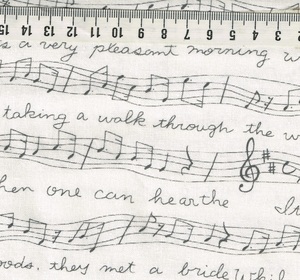 15 14 13 12 11 10 9 8 7 6 5 4 3 2
is a very pleasant morning w
taking a walk through the w
hen one can hearthe
oods, they met a bride Whil